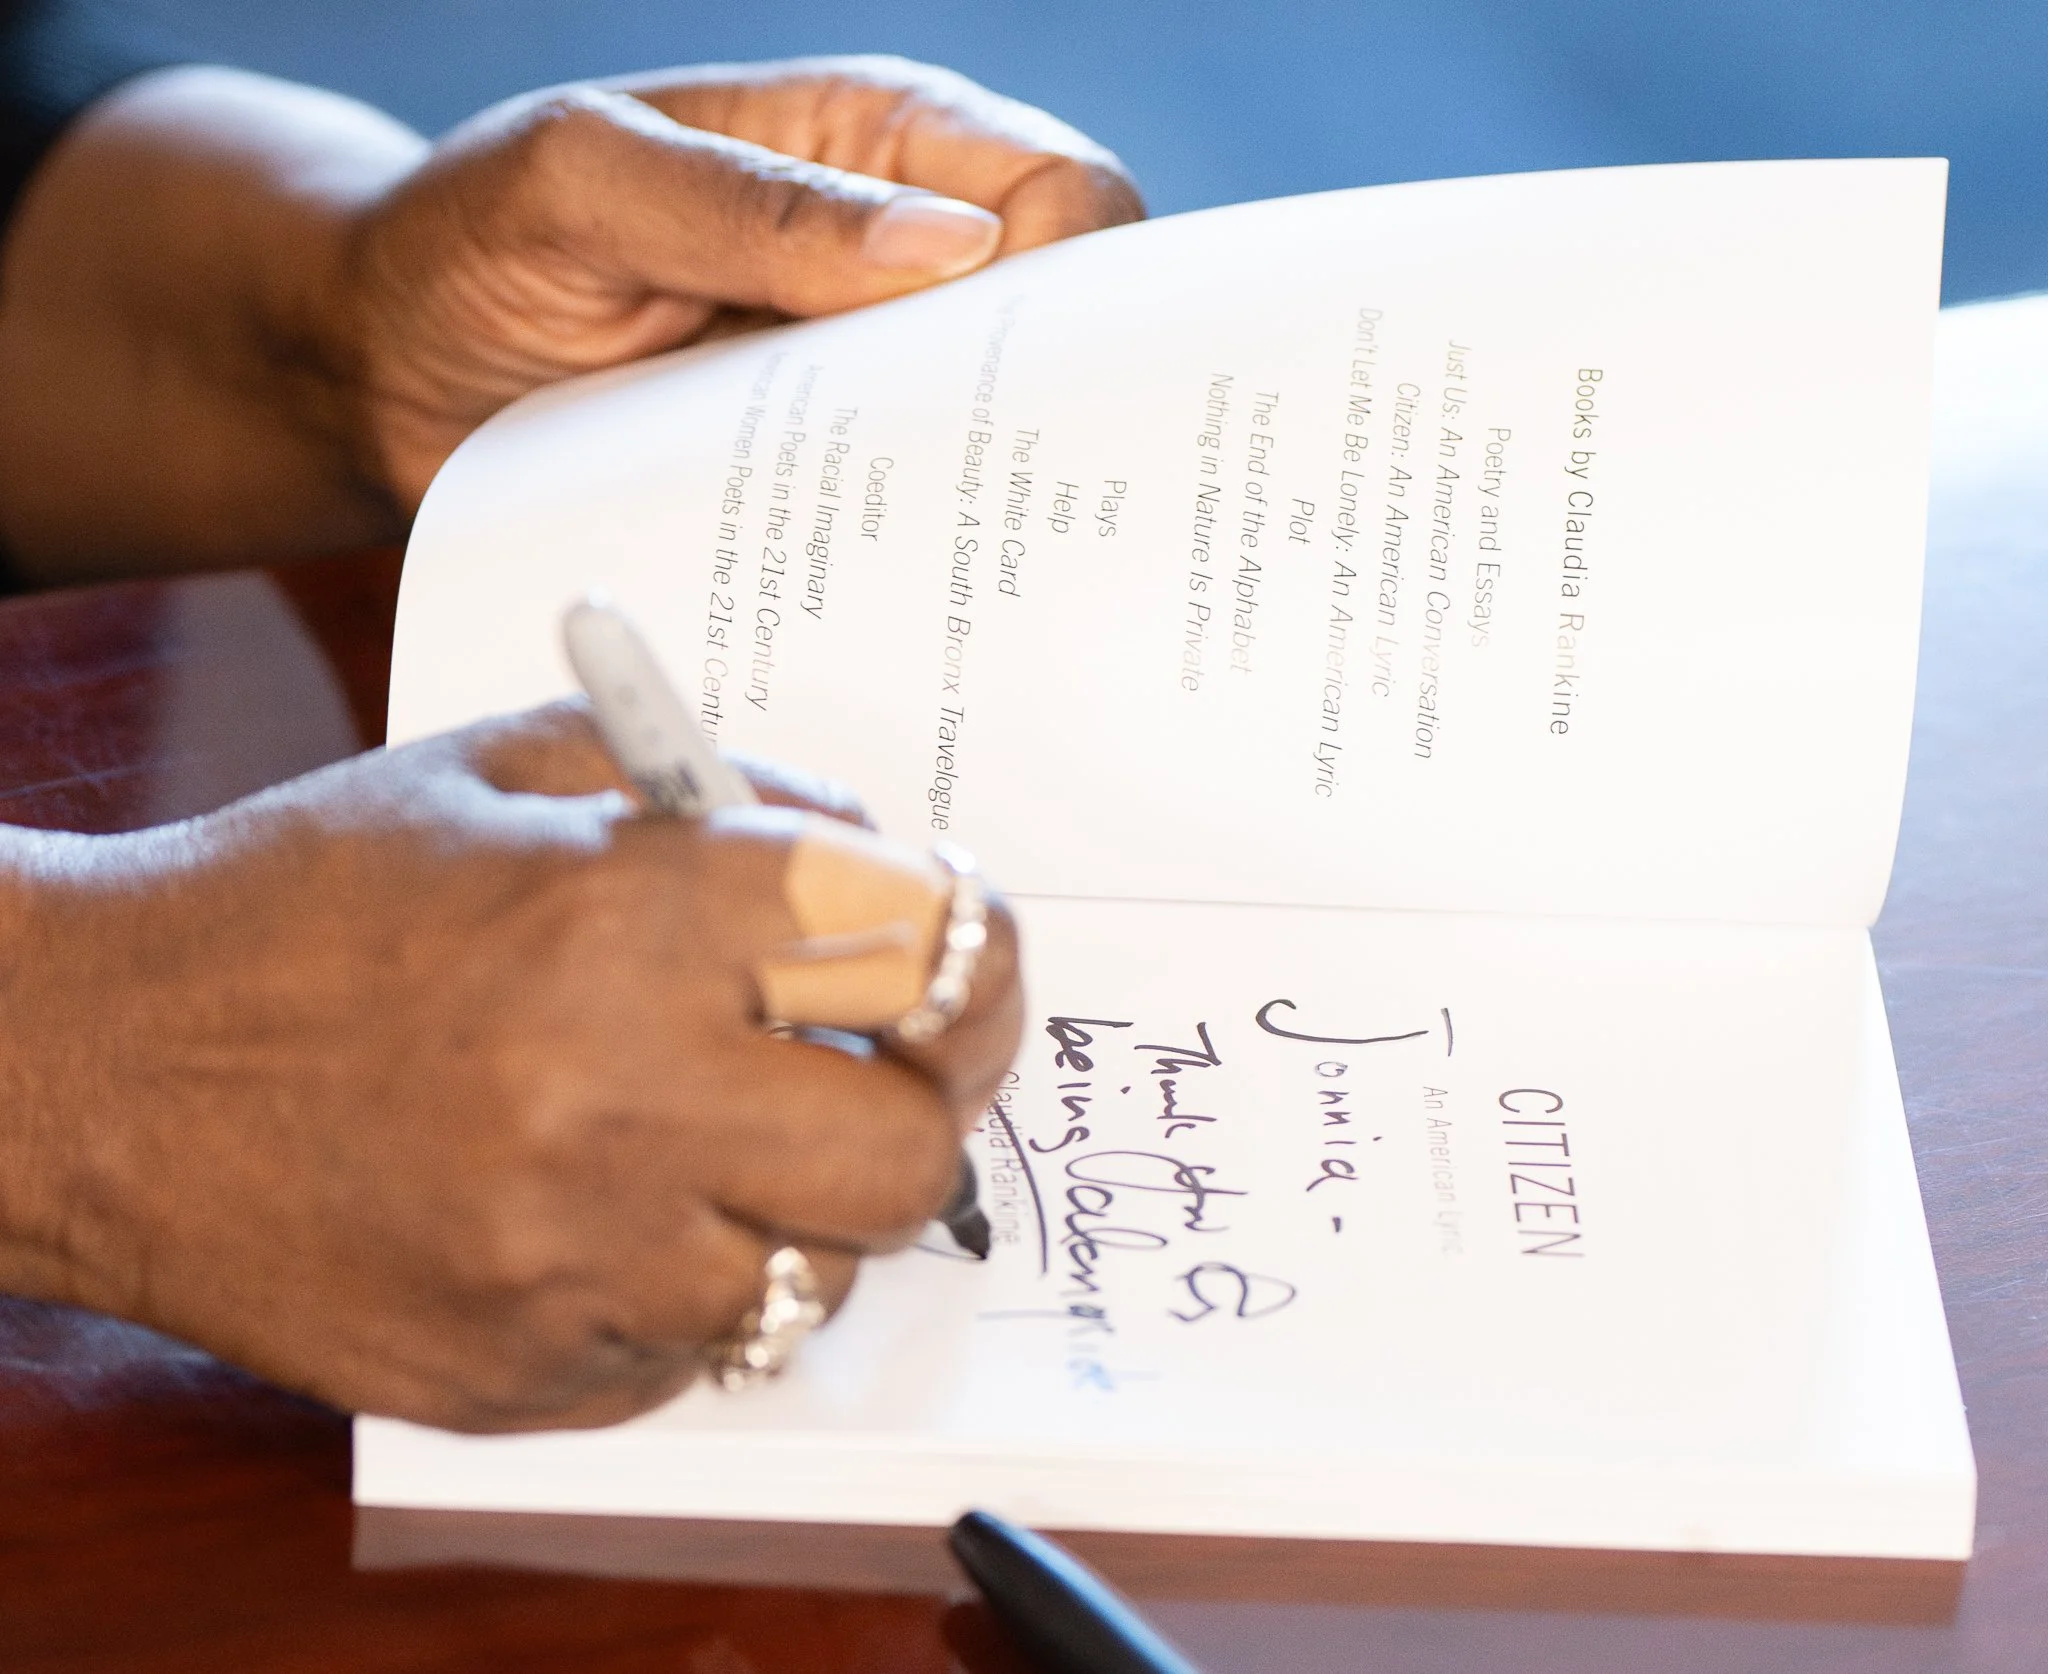 Books by Claudia Rankine
Poetry and Essays
Just Us: An American Conversation
Citizen: An American Lyric
Don't Let Me Be Lonely: An American Lyric
Plot
The End of the Alphabet
Nothing in Nature Is Private
Plays
Help
The White Card
The Provenance of Beauty: A South Bronx Travelogue
Coeditor
The Racial Imaginary
American Poets in the 21st Century
American Women Poets in the 21st Centu
CITIZEN
An American Lyric
Jonnia -
Thank you for
being
Claudia Rankine